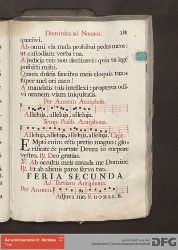 Dominica ad Nonam. 281
quæsivi.
Ab omni via mala prohibui pedes meos:
ut custodiam verba tua.
A judiciis tuis non declinavi: quia tu legē
posuisti mihi.
Quam dulcia faucibus meis eloquia tua:
super mel ori meo!
A mandatis tuis intellexi: propterea odi
vi omnem viam iniquitatis.
Per Annum Antiphona.
Alleluja, alleluja, alleluja.
Temp. Pasch. Antiphona.
Alleluja, alleluja, alleluja, alleluja. Capit.
Empti enim estis pretio magno: glo
rificate et portate Deum in corpore
vestro. ℟. Deo gratias.
℣. Ab occultis meis munda me Domine.
℟. Et ab alienis parce servo tuo.
FERIA SECUNDA
Ad Tertiam Antiphona.
Per Annum.
Adjuva me. E u o u a e.
DFG